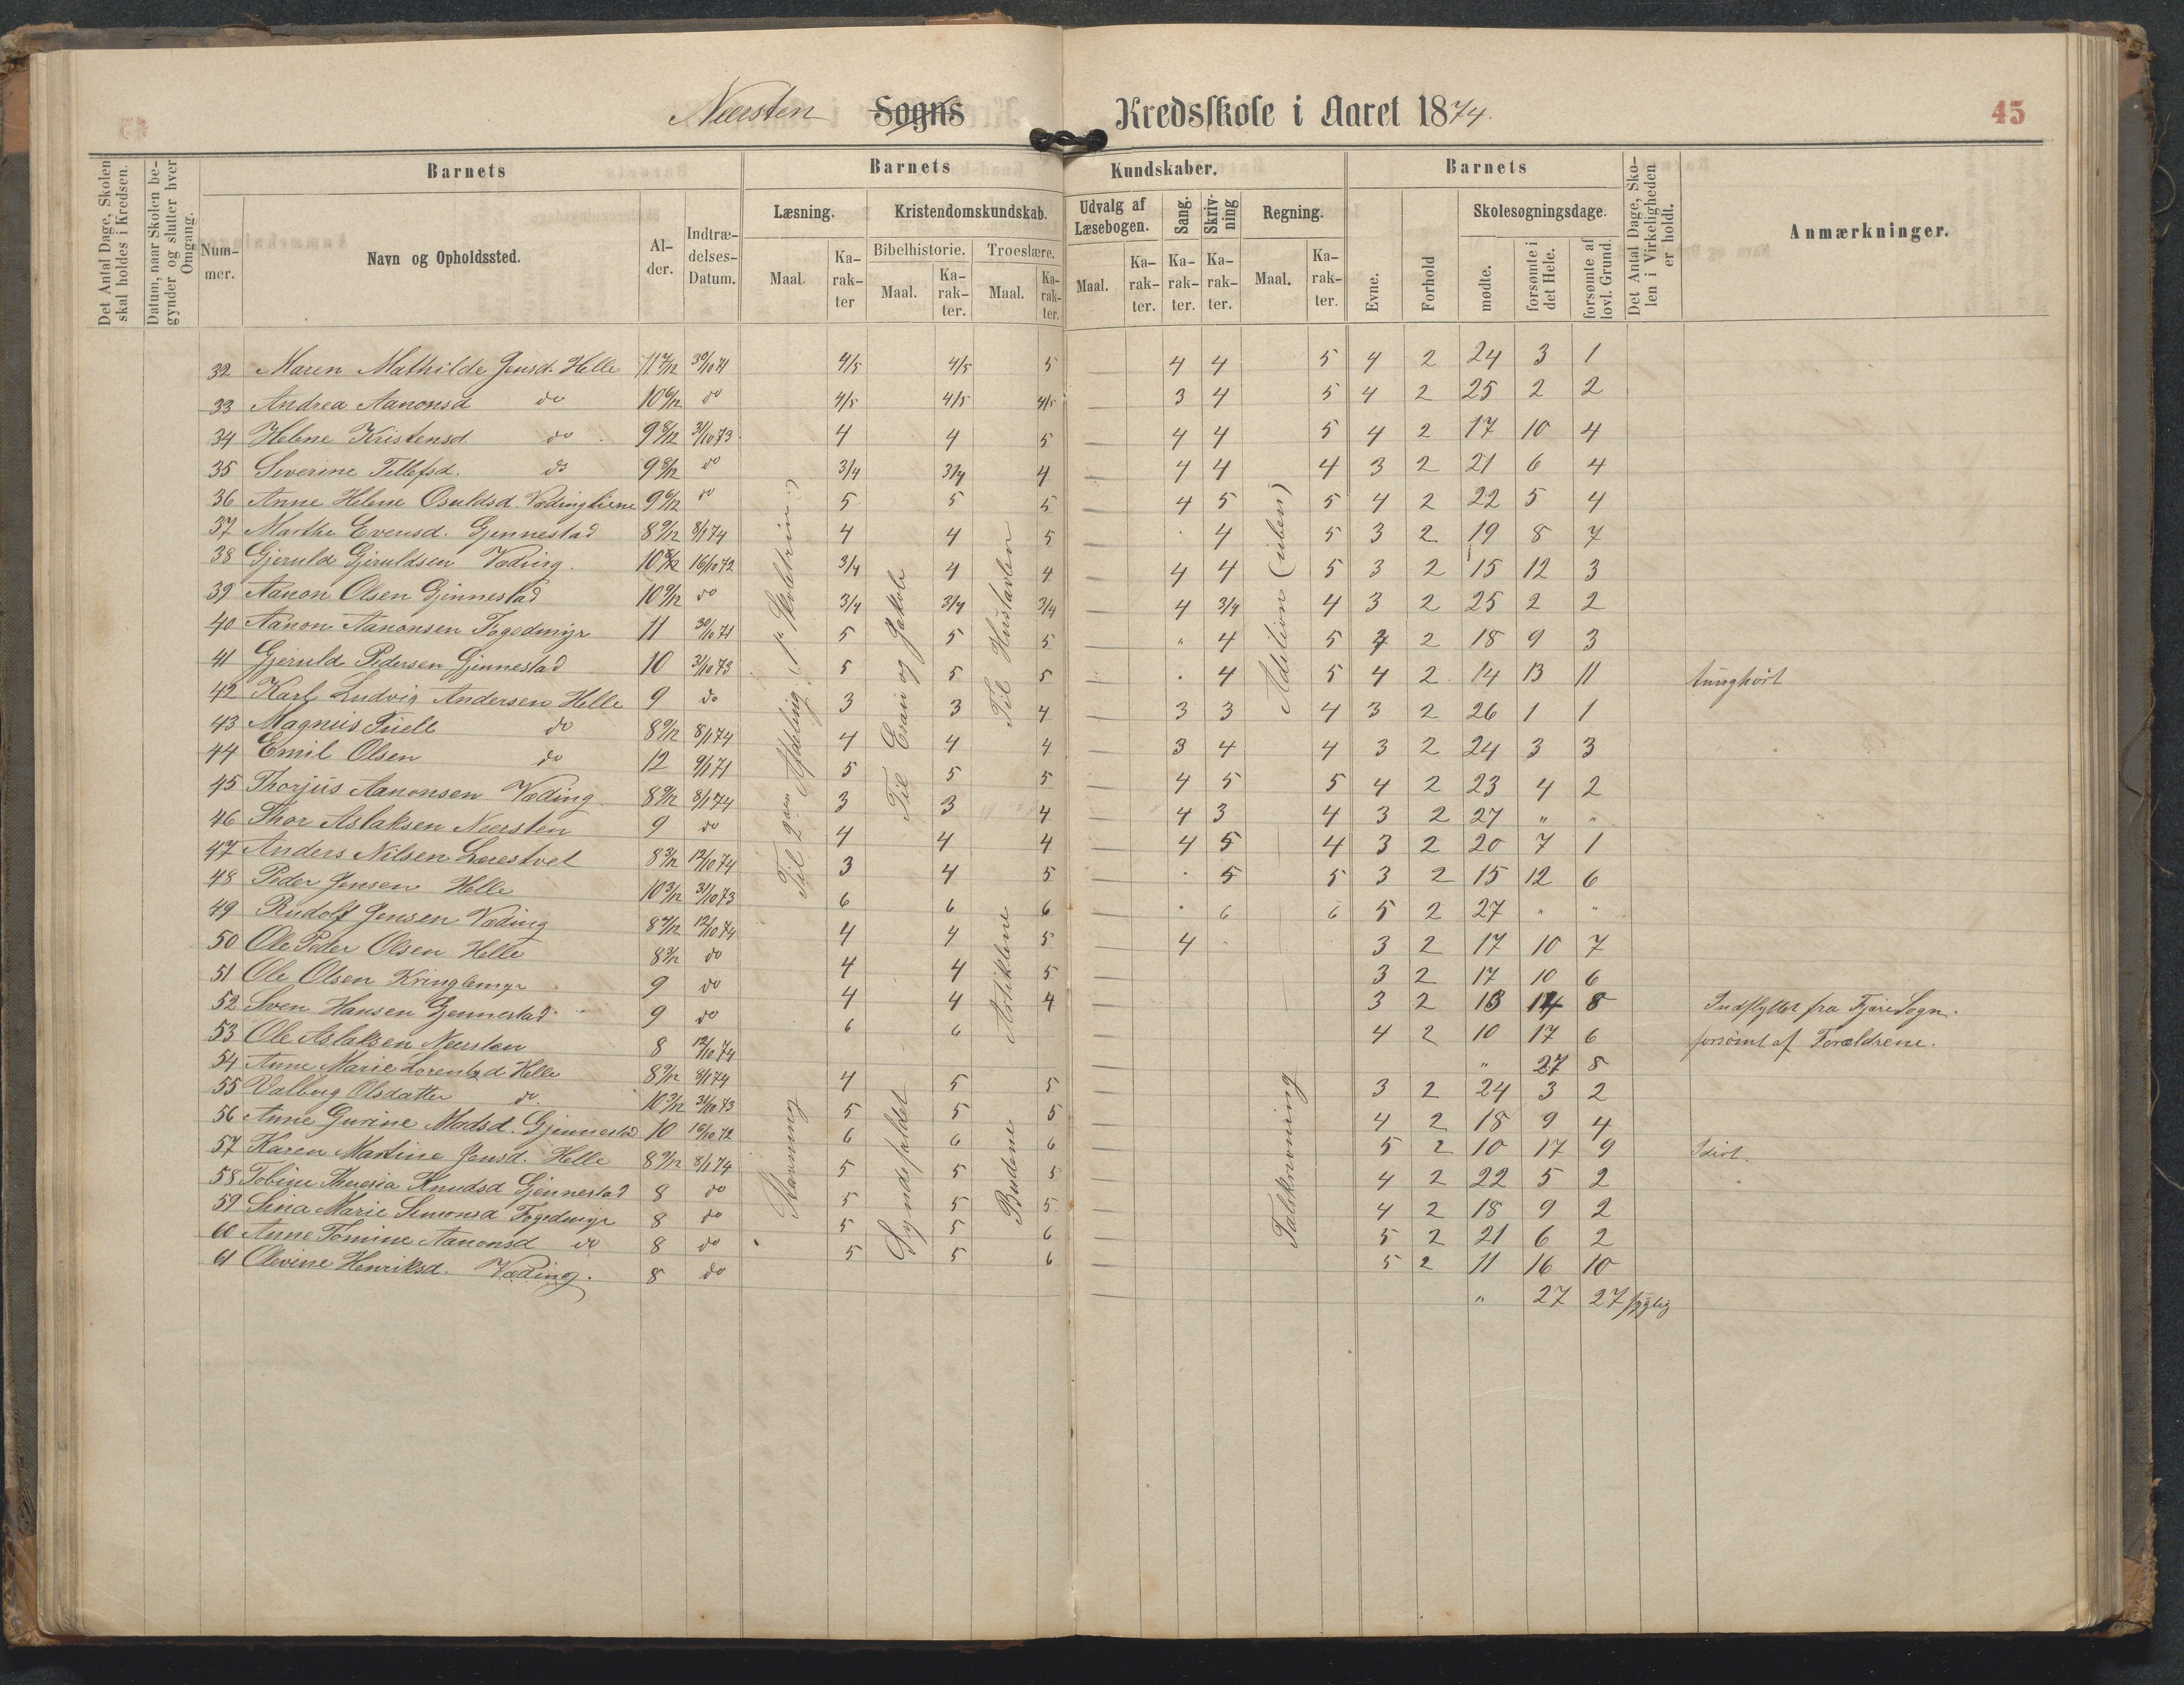 Neersten Sogns Kredsskole i Aaret 1874. 45
Det Antal Dage, Skolen skal holdes i Kredsen.
Datum, naar Skolen begynder og slutter hver Omgang.
Barnets
Barnets Kundskaber.
Barnets
Det Antal Dage, Skolen i Virkeligheden er holdt.
Anmærkninger.
Nummer.
Navn og Opholdssted.
Alder.
Indtrædelses-Datum.
Læsning.
Kristendomskundskab.
Udvalg af Læsebogen.
Sang.
Skrivning
Regning.
Evne.
Forhold
Skolesøgningsdage.
Bibelhistorie.
Troeslære.
Maal. Karakter
Maal. Karakter.
Maal. Karakter.
Maal. Karakter.
Karakter.
Karakter.
Maal. Karakter.
mødte.
forsømte i det Hele.
forsømte af lovl. Grund.
32 Maren Mathilde Jensd. Helle 11 4/12 30/10 71 4/5 4/5 5 4 4 5 4 2 24 3 1
33 Andrea Aanonsd do 10 6/12 do 4/5 4/5 4/5 — 3 4 5 4 2 25 2 2
34 Helene Kristensd. do 9 8/12 31/10 73 4 4 5 — 4 4 5 4 2 17 10 4
35 Severine Tellefsd. do 9 8/12 do 3/4 3/4 4 — 4 4 4 3 2 21 6 4
36 Anne Helene Osuldsd. Vædingkiene 9 6/12 do 5 5 5 — 4 5 5 4 2 22 5 4
37 Marthe Evensd. Gjennestad 8 9/12 8/1 74 4 4 5 — . 4 5 3 2 19 8 7
38 Gjeruld Gjeruldsen Væding. 10 8/12 16/10 72 3/4 4 4 — 4 4 5 3 2 15 12 3
39 Aanon Olsen Gjennestad 10 9/12 do 3/4 3/4 3/4 — 4 3/4 4 3 2 25 2 2
40 Aanon Aanonsen Fogedmyr 11 30/10 71 5 5 5 — " 4 5 4 2 18 9 3
41 Gjeruld Pedersen Gjennestad 10 31/10 73 5 5 5 — . 4 5 4 2 14 13 11 tunghørt
42 Karl Ludvig Andersen Helle 9 do 3 3 4 — 3 3 4 3 2 26 1 1
43 Magnus Tuell do 8 9/12 8/1 74 4 4 4 — 3 4 4 3 2 24 3 3
44 Emil Olsen do 12 9/1 71 5 5 5 — 4 5 5 4 2 23 4 2
45 Thorjus Aanonsen Væding 8 9/12 8/1 74 3 3 4 — 4 3 4 3 2 27 " "
46 Thor Aslaksen Neersten 9 do 4 4 4 — 4 5 4 3 2 20 7 1
47 Anders Nilsen 8 3/12 12/10 74 3 4 5 — . 5 5 3 2 15 12 6
48 Peder Jensen Helle 10 3/12 31/10 73 6 6 6 — . 6 6 5 2 27 " "
49 Rudolf Jensen Væding 8 4/12 12/10 74 4 4 5 — 4 " 3 2 17 10 7
50 Ole Peder Olsen Helle 8 3/12 do 4 4 5 — 3 2 17 10 6
51 Ole Olsen Kringlemyr 9 do 4 4 4 — 3 2 13 14 8 Indflyttet fra Fjære Sogn.
52 Sven Hansen Gjennestad 9 do 6 6 — 4 2 10 17 6 forsømt af Forældrene.
53 Ole Aslaksen Neersten 8 12/10 74 — " 27 8
54 Anne Marie Lorentzd Helle 8 9/12 8/1 74 4 5 5 — 3 2 24 3 2
55 Valborg Olsdatter do. 10 3/12 31/10 73 5 5 5 — 4 2 18 9 4
56 Anne Gurine Madsd. Gjennestad 10 16/10 72 6 6 6 — 5 2 10 17 9 Idiot.
57 Karen Martine Jensd. Helle 8 9/12 8/1 74 5 5 5 — 4 2 22 5 2
58 Tobine Theresia Knudsd Gjennestad 8 do 5 5 5 — 4 2 18 9 2
59 Sina Marie Simonsd Fogedmyr 8 do 5 5 6 — 5 2 21 6 2
60 Anne Tomine Aanonsd do 8 do 5 5 6 — 5 2 11 16 10
61 Olevine Henriksd. Væding. 8 do — " 27 27 sygelig
Til 2den Afdeling
Til Esau og Jakob
Til Hustavlen
Addition (uben)
Artiklene
Stavning
Syndefaldet
Budene
Talskrivning